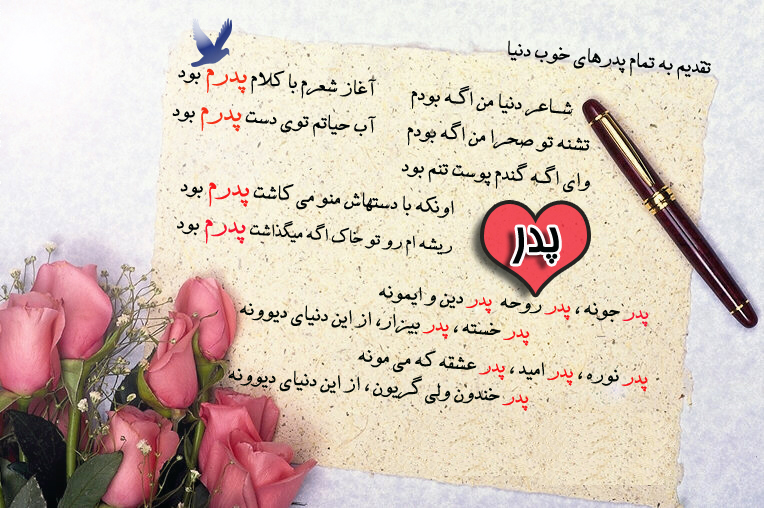 تقدیم به تمام پدرهای خوب دنیا
شاعر دنیا من اگه بودم
آغاز شعرم با کلام پدرم بود
تشنه تو صحرا من اگه بودم
آب حیاتم توی دست پدرم بود
وای اگه گندم پوست تنم بود
اونکه با دستهاش منو می کاشت پدرم بود
ریشه ام رو تو خاک اگه میگذاشت پدرم بود
پدر
پدر جونه ، پدر روحه پدر دین و ایمونه
پدر خسته ، پدر بیزار، از این دنیای دیوونه
پدر نوره ، پدر امید ، پدر عشقه که می مونه
پدر خندون ولی گریون ، از این دنیای دیوونه